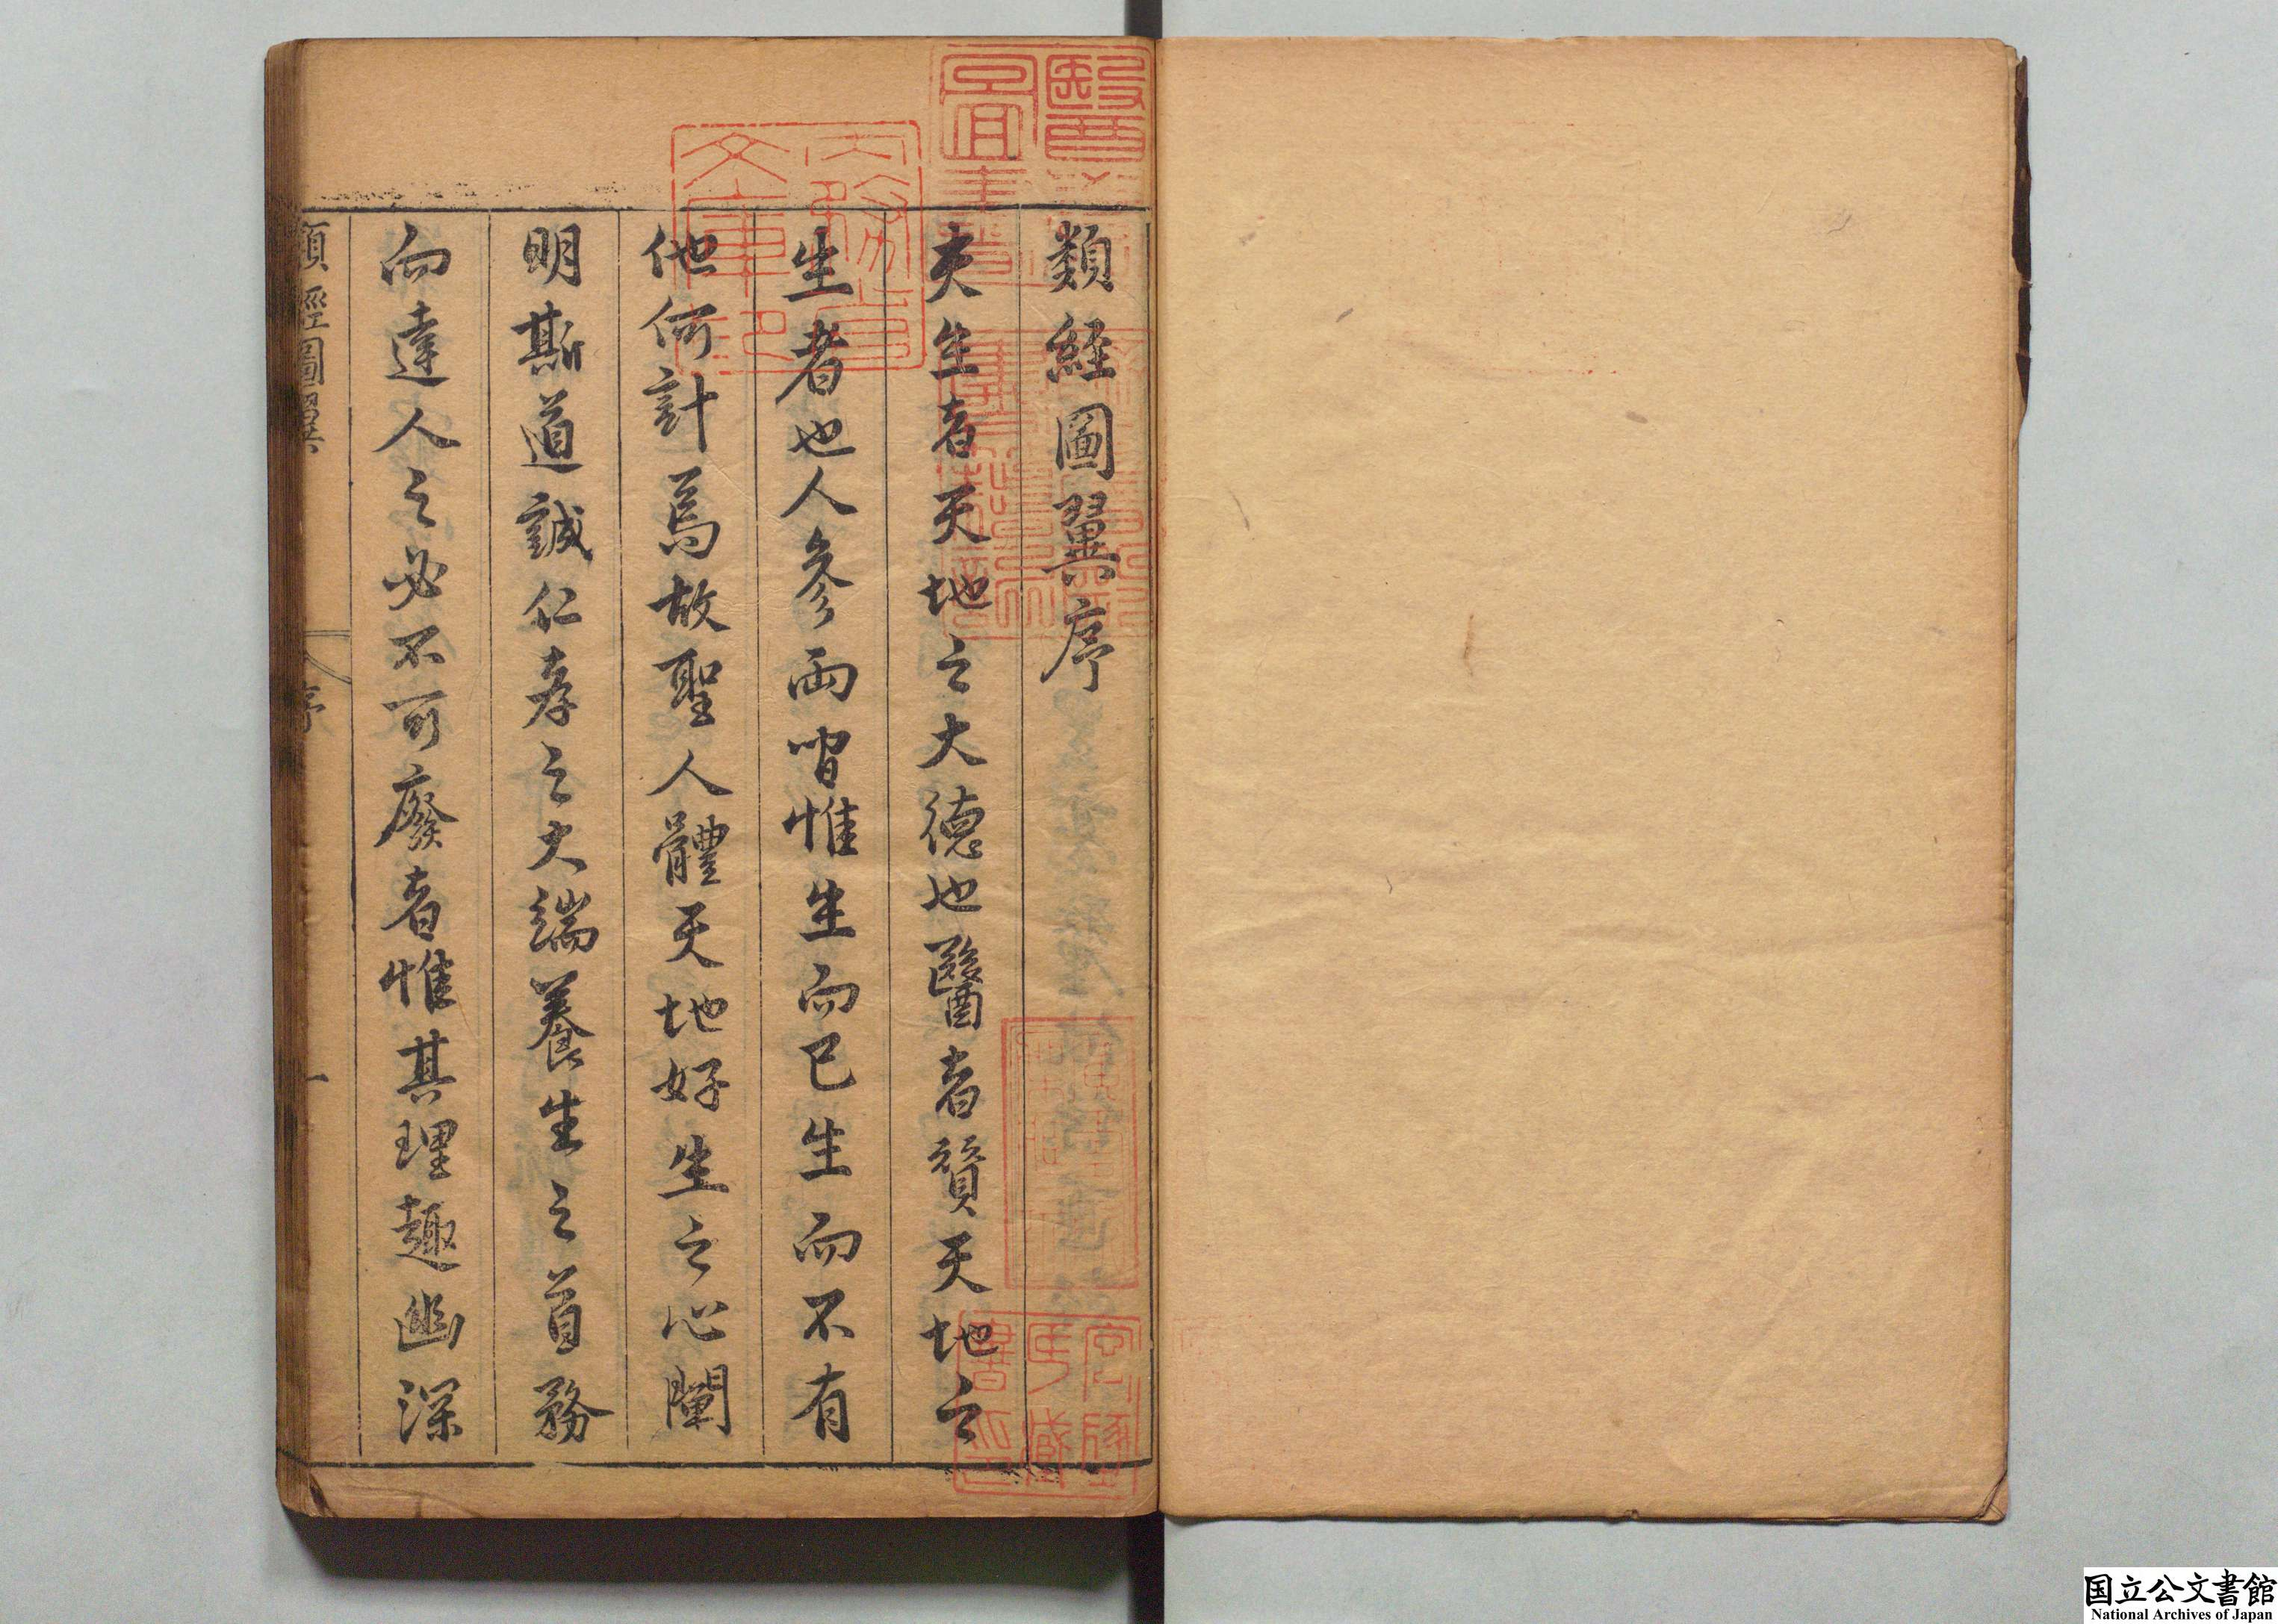 類経圖翼序
夫生者天地之大德也醫者贊天地之
生者也人參兩間惟生而已生而不有
他何計焉故聖人體天地好生之心闡
明斯道誠仁孝之大端養生之首務
而達人之必不可廢者惟其理趣幽深
類經圖翼
序
一
国立公文書館
National Archives of Japan